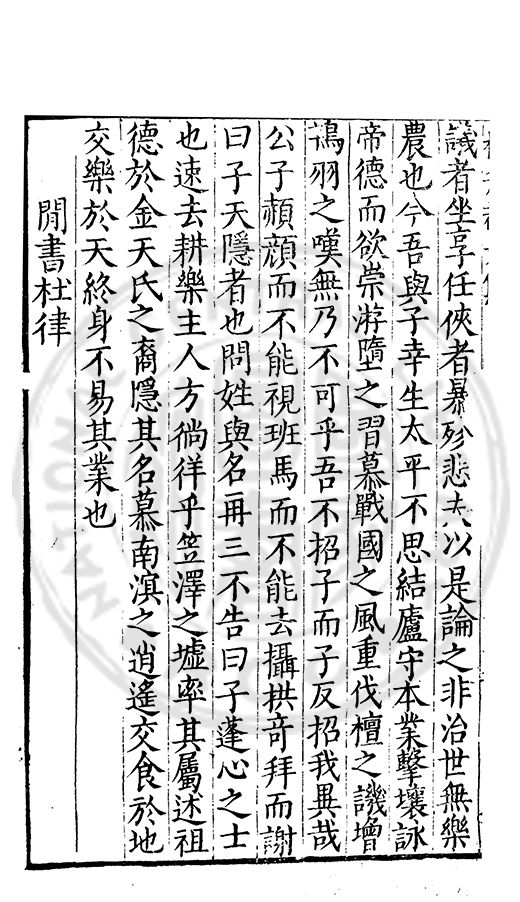 議者坐享任俠者暴殄悲夫以是論之非治世無樂
農也今吾與子幸生太平不思結廬守本業擊壤詠
帝德而欲崇游墮之習慕戰國之風重伐檀之譏增
鴇羽之嘆無乃不可乎吾不招子而子反招我異哉
公子頳顔而不能視班馬而不能去攝拱竒拜而謝
曰子天隱者也問姓與名再三不告曰子蓬心之士
也速去耕樂主人方徜徉乎笠澤之墟率其屬述祖
德於金天氏之裔隱其名慕南溟之逍遙交食於地
交樂於天終身不易其業也
閒書杜律